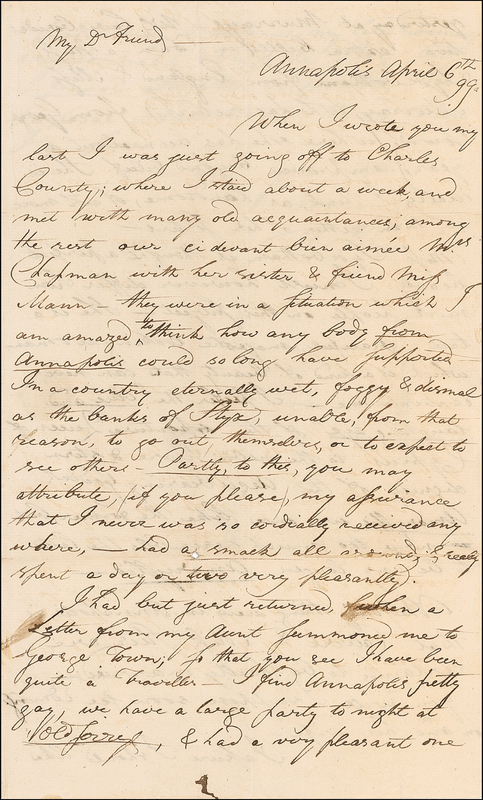 My Dr Friend
Annapolis April 6th
99.
When I wrote you my
last I was just going off to Charles
County; where I staid about a week, and
met with many old acquaintances; among
the rest our ci devant bien aimée Mrs
Chapman with her sister & friend Miss
Mann — they were in a situation which I
am amazed, to think how any body from
Annapolis could so long have supported
In a country eternally wet, foggy & dismal
as the banks of Styx, unable, from that
reason, to go out, themselves, or to expect to
see others — Partly, to this, you may
attribute, (if you please), my assurance
that I never was so cordially received any
where, — had a smack all round; & really
spent a day or two very pleasantly.
I had but just returned, when a
Letter from my Aunt summoned me to
George Town; So that you see I have been
quite a Traveller — I find Annapolis pretty
gay, we have a large party to night at
, & had a very pleasant one